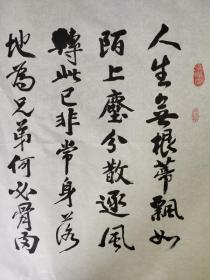 人生無根蒂飄如
陌上塵分散逐風
轉此已非常身落
地為兄弟何必骨肉